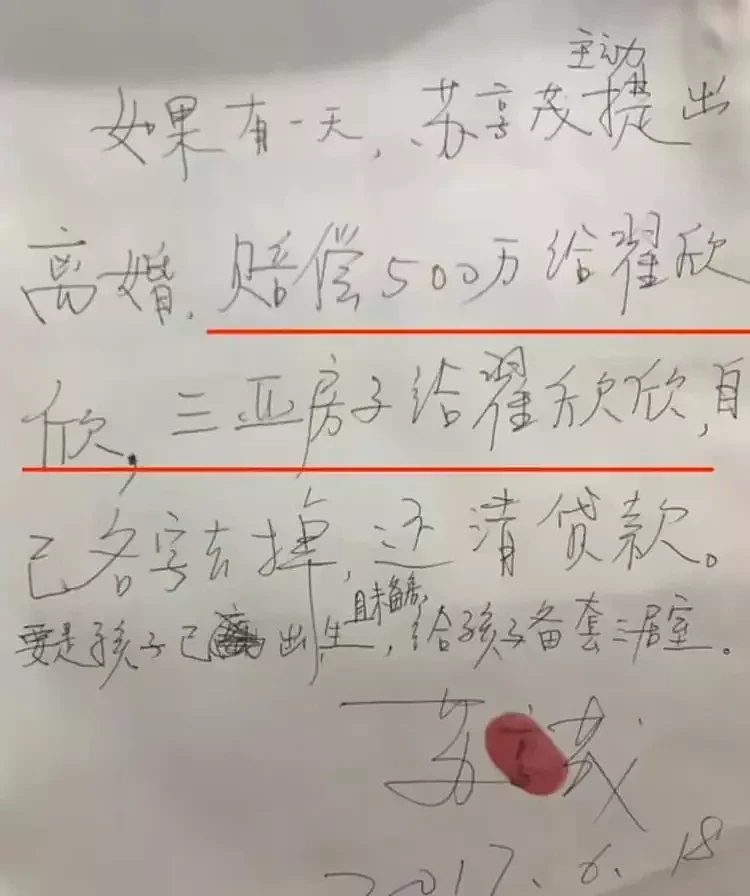 主动
如果有一天,苏享茂提出
离婚,赔偿500万给翟欣
欣,三亚房子给翟欣欣,自
己名字去掉,还清贷款。
且未备房,
要是孩子已出生,给孩子备套二居室。
苏享茂
2017.6.18